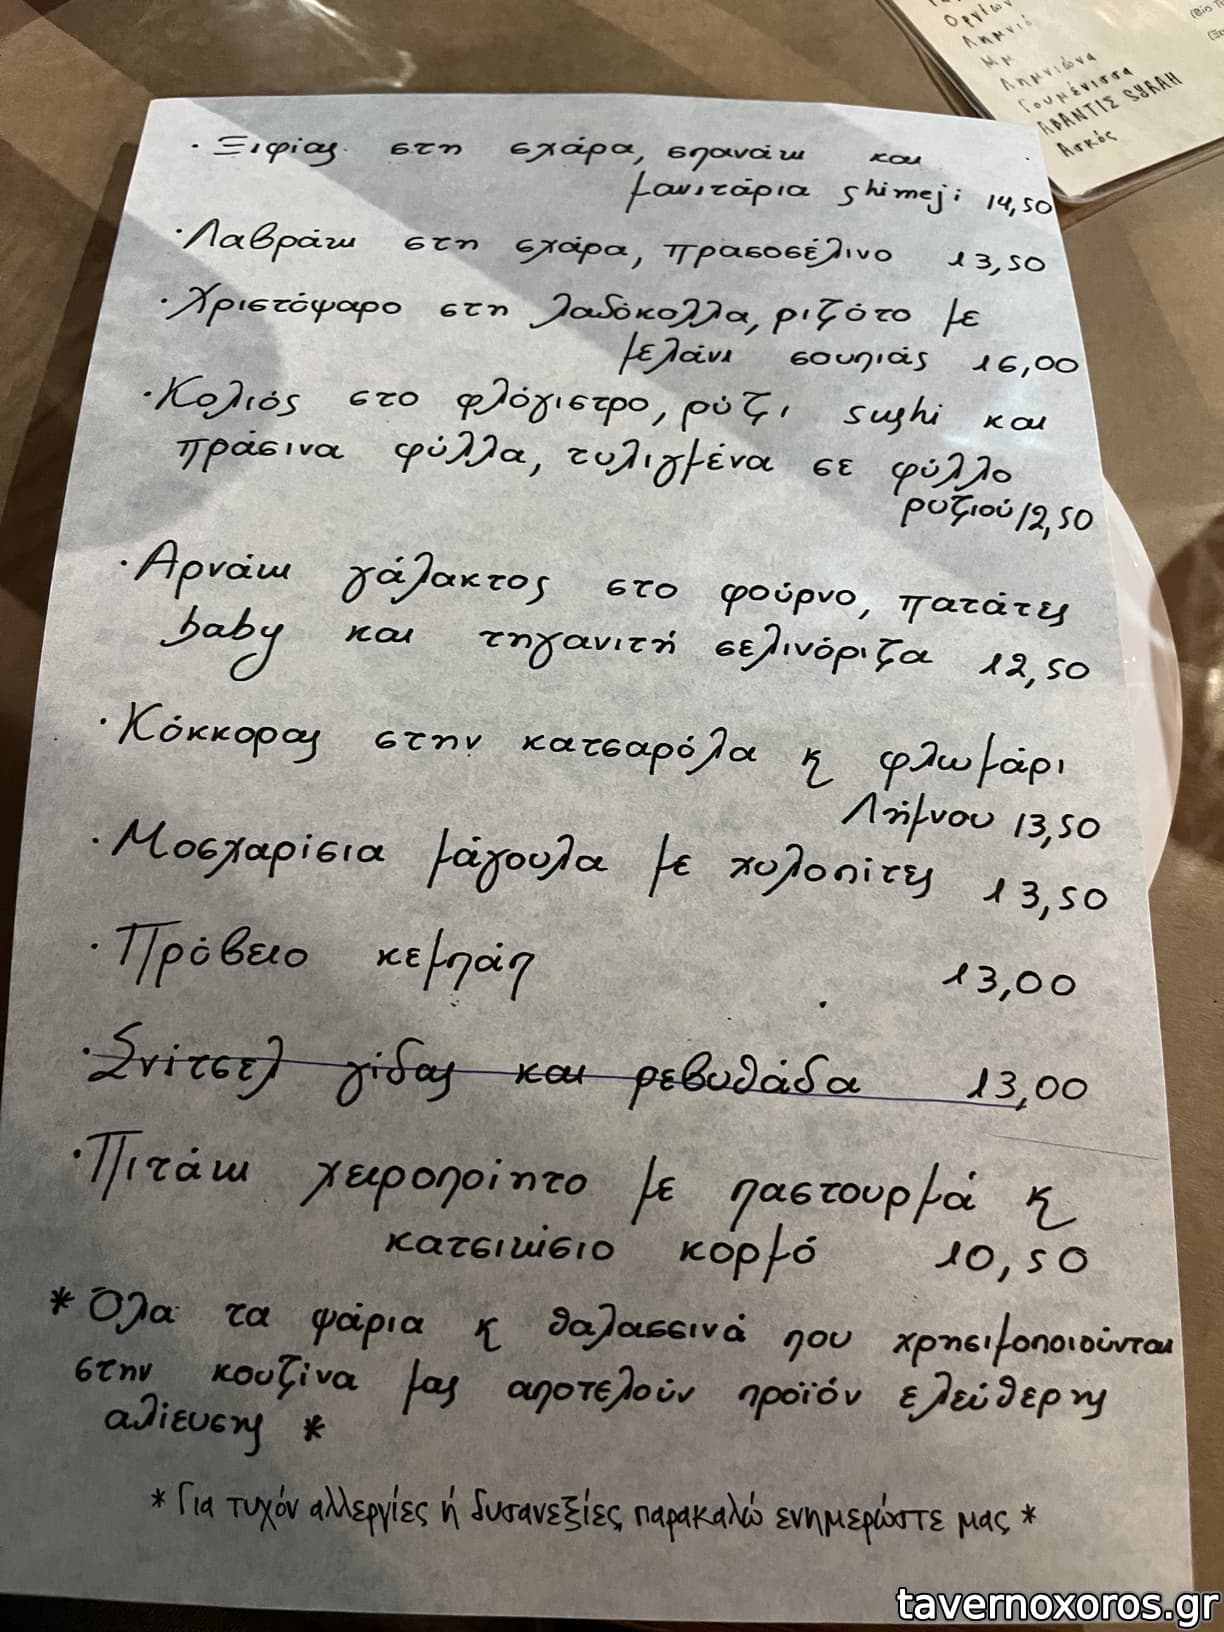 Οργίων
Λημνιό
Λημνιώνα
Γουμένισσα
ΑΒΑΝΤΙΣ SYRAH
Ασκός
· Ξιφίας στη σχάρα, σπανάκι και
μανιτάρια shimeji 14,50
· Λαβράκι στη σχάρα, πρασοσέλινο 13,50
· Χριστόψαρο στη λαδόκολλα, ριζότο με
μελάνι σουπιάς 16,00
· Κολιός στο φλόγιστρο, ρύζι sushi και
πράσινα φύλλα, τυλιγμένα σε φύλλο
ρυζιού 12,50
· Αρνάκι γάλακτος στο φούρνο, πατάτες
baby και τηγανιτή σελινόριζα 12,50
· Κόκκορας στην κατσαρόλα κ φλωμάρι
Λήμνου 13,50
· Μοσχαρίσια μάγουλα με χυλοπίτες 13,50
· Πρόβειο κεμπάπ 13,00
· Σνίτσελ γίδας και ρεβυθάδα 13,00
· Πιτάκι χειροποίητο με παστουρμά κ
κατσικίσιο κορμό 10,50
* Όλα τα ψάρια κ θαλασσινά που χρησιμοποιούνται
στην κουζίνα μας αποτελούν προϊόν ελεύθερης
αλίευσης *
* Για τυχόν αλλεργίες ή δυσανεξίες παρακαλώ ενημερώστε μας *
tavernoxoros.gr